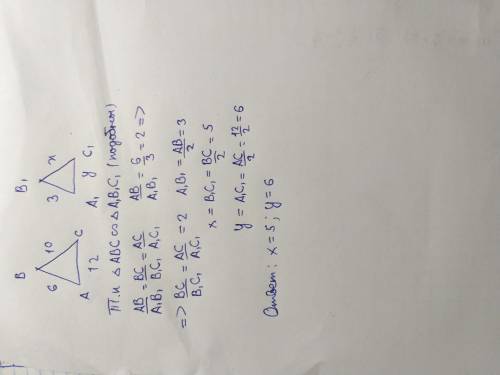 B B₁
6 10 3 x
A 12 C A₁ y C₁
Т.к △ ABC ∞ △ A₁B₁C₁ (подобны)
AB/A₁B₁ = BC/B₁C₁ = AC/A₁C₁ AB/A₁B₁ = 6/3 = 2 =>
=> BC/B₁C₁ = AC/A₁C₁ = 2 A₁B₁ = AB/2 = 3
x = B₁C₁ = BC/2 = 5
y = A₁C₁ = AC/2 = 12/2 = 6
Ответ: x = 5; y = 6